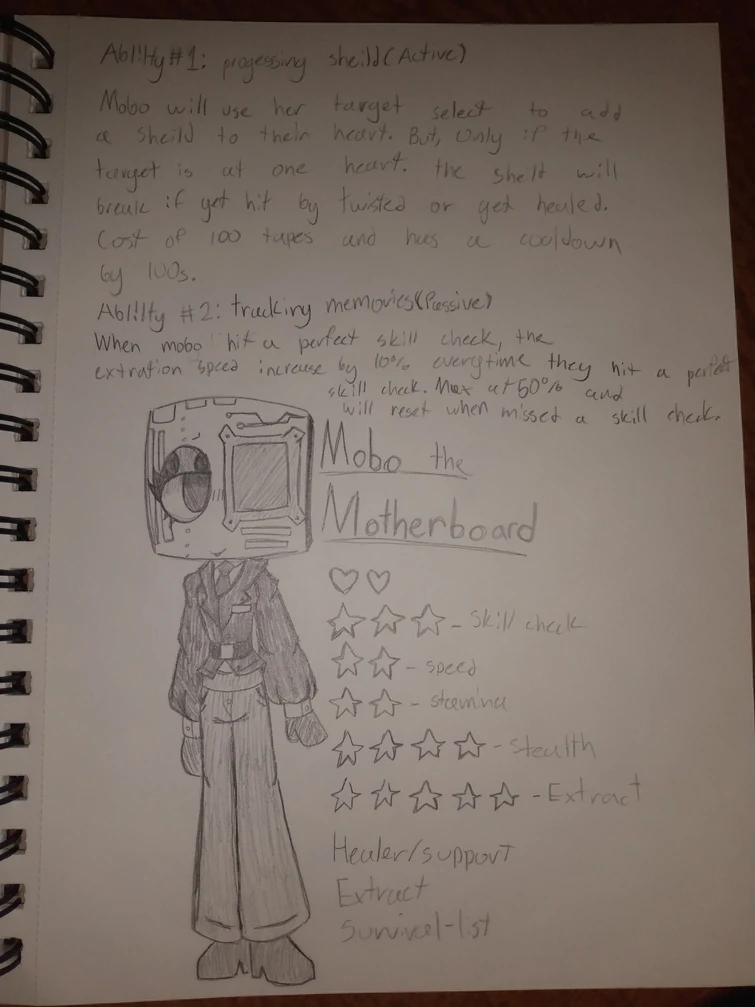 Ability #1: progessing sheild (Active)
Mobo will use her target select to add
a sheild to their heart. But, only if the
target is at one heart. the sheld will
break if get hit by twisted or get healed.
Cost of 100 tapes and has a cooldown
by 100s.
Ability #2: tracking memories (Passive)
When mobo hit a perfect skill check, the
extration speed increase by 10% everytime they hit a perfect
skill check. Max at 50% and
will reset when missed a skill check.
Mobo the
Motherboard
- Skill check
- speed
- stamina
- Stealth
- Extract
Healer/support
Extract
Survivel-list